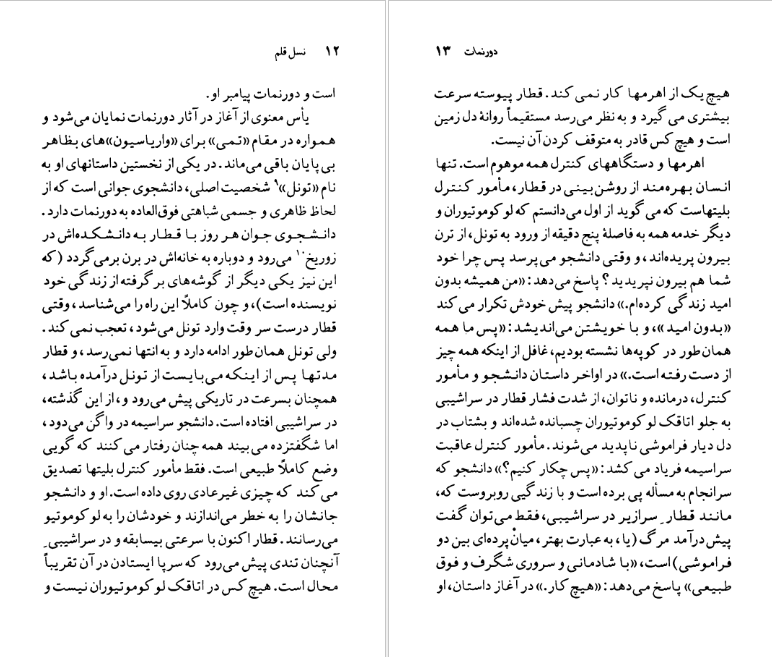 ۱۲ نسل قلم
است و دورنمات پیامبر او.
یأس معنوی از آغاز در آثار دورنمات نمایان می‌شود و
همواره در مقام «تمی» برای «واریاسیون»های بظاهر
بی‌پایان باقی می‌ماند. در یکی از نخستین داستانهای او به
نام «تونل»۹ شخصیت اصلی، دانشجوی جوانی است که از
لحاظ ظاهری و جسمی شباهتی فوق‌العاده به دورنمات دارد.
دانشجوی جوان هر روز با قطار به دانشکده‌اش در
زوریخ۱۰ می‌رود و دوباره به خانه‌اش در برن برمی‌گردد (که
این نیز یکی دیگر از گوشه‌های برگرفته از زندگی خود
نویسنده است)، و چون کاملاً این راه را می‌شناسد، وقتی
قطار درست سر وقت وارد تونل می‌شود، تعجب نمی‌کند.
ولی تونل همان‌طور ادامه دارد و به انتها نمی‌رسد، و قطار
مدتها پس از اینکه می‌بایست از تونل درآمده باشد،
همچنان بسرعت در تاریکی پیش می‌رود و، از این گذشته،
در سراشیبی افتاده است. دانشجو سراسیمه در واگن می‌دود،
اما شگفتزده می‌بیند همه چنان رفتار می‌کنند که گویی
وضع کاملاً طبیعی است. فقط مأمور کنترل بلیتها تصدیق
می‌کند که چیزی غیرعادی روی داده است. او و دانشجو
جانشان را به خطر می‌اندازند و خودشان را به لوکوموتیو
می‌رسانند. قطار اکنون با سرعتی بیسابقه و در سراشیبیِ
آنچنان تندی پیش می‌رود که سرپا ایستادن در آن تقریباً
محال است. هیچ‌کس در اتاقک لوکوموتیوران نیست و
دورنمات ۱۳
هیچ یک از اهرمها کار نمی‌کند. قطار پیوسته سرعت
بیشتری می‌گیرد و به نظر می‌رسد مستقیماً روانهٔ دل زمین
است و هیچ کس قادر به متوقف کردن آن نیست.
اهرمها و دستگاههای کنترل همه موهوم است. تنها
انسان بهره‌مند از روشن‌بینی در قطار، مأمور کنترل
بلیتهاست که می‌گوید از اول می‌دانستم که لوکوموتیوران و
دیگر خدمه همه به فاصلهٔ پنج دقیقه از ورود به تونل، از ترن
بیرون پریده‌اند، و وقتی دانشجو می‌پرسد پس چرا خود
شما هم بیرون نپریدید؟ پاسخ می‌دهد: «من همیشه بدون
امید زندگی کرده‌ام.» دانشجو پیش خودش تکرار می‌کند
«بدون امید»، و با خویشتن می‌اندیشد: «پس ما همه
همان‌طور در کوپه‌ها نشسته بودیم، غافل از اینکه همه چیز
از دست رفته است.» در اواخر داستان دانشجو و مأمور
کنترل، درمانده و ناتوان، از شدت فشار قطار در سراشیبی
به جلو اتاقک لوکوموتیوران چسبانده شده‌اند و بشتاب در
دل دیار فراموشی ناپدید می‌شوند. مأمور کنترل عاقبت
سراسیمه فریاد می‌کشد: «پس چکار کنیم؟» دانشجو که
سرانجام به مسأله پی برده است و با زندگیی روبروست که،
مانند قطارِ سرازیر در سراشیبی، فقط می‌توان گفت
پیش‌درآمد مرگ (یا، به عبارت بهتر، میانْ‌پرده‌ای بین دو
فراموشی) است، «با شادمانی و سروری شگرف و فوق
طبیعی» پاسخ می‌دهد: «هیچ‌کار.» در آغاز داستان، او